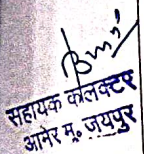 सहायक कलेक्टर
आमेर मु. जयपुर